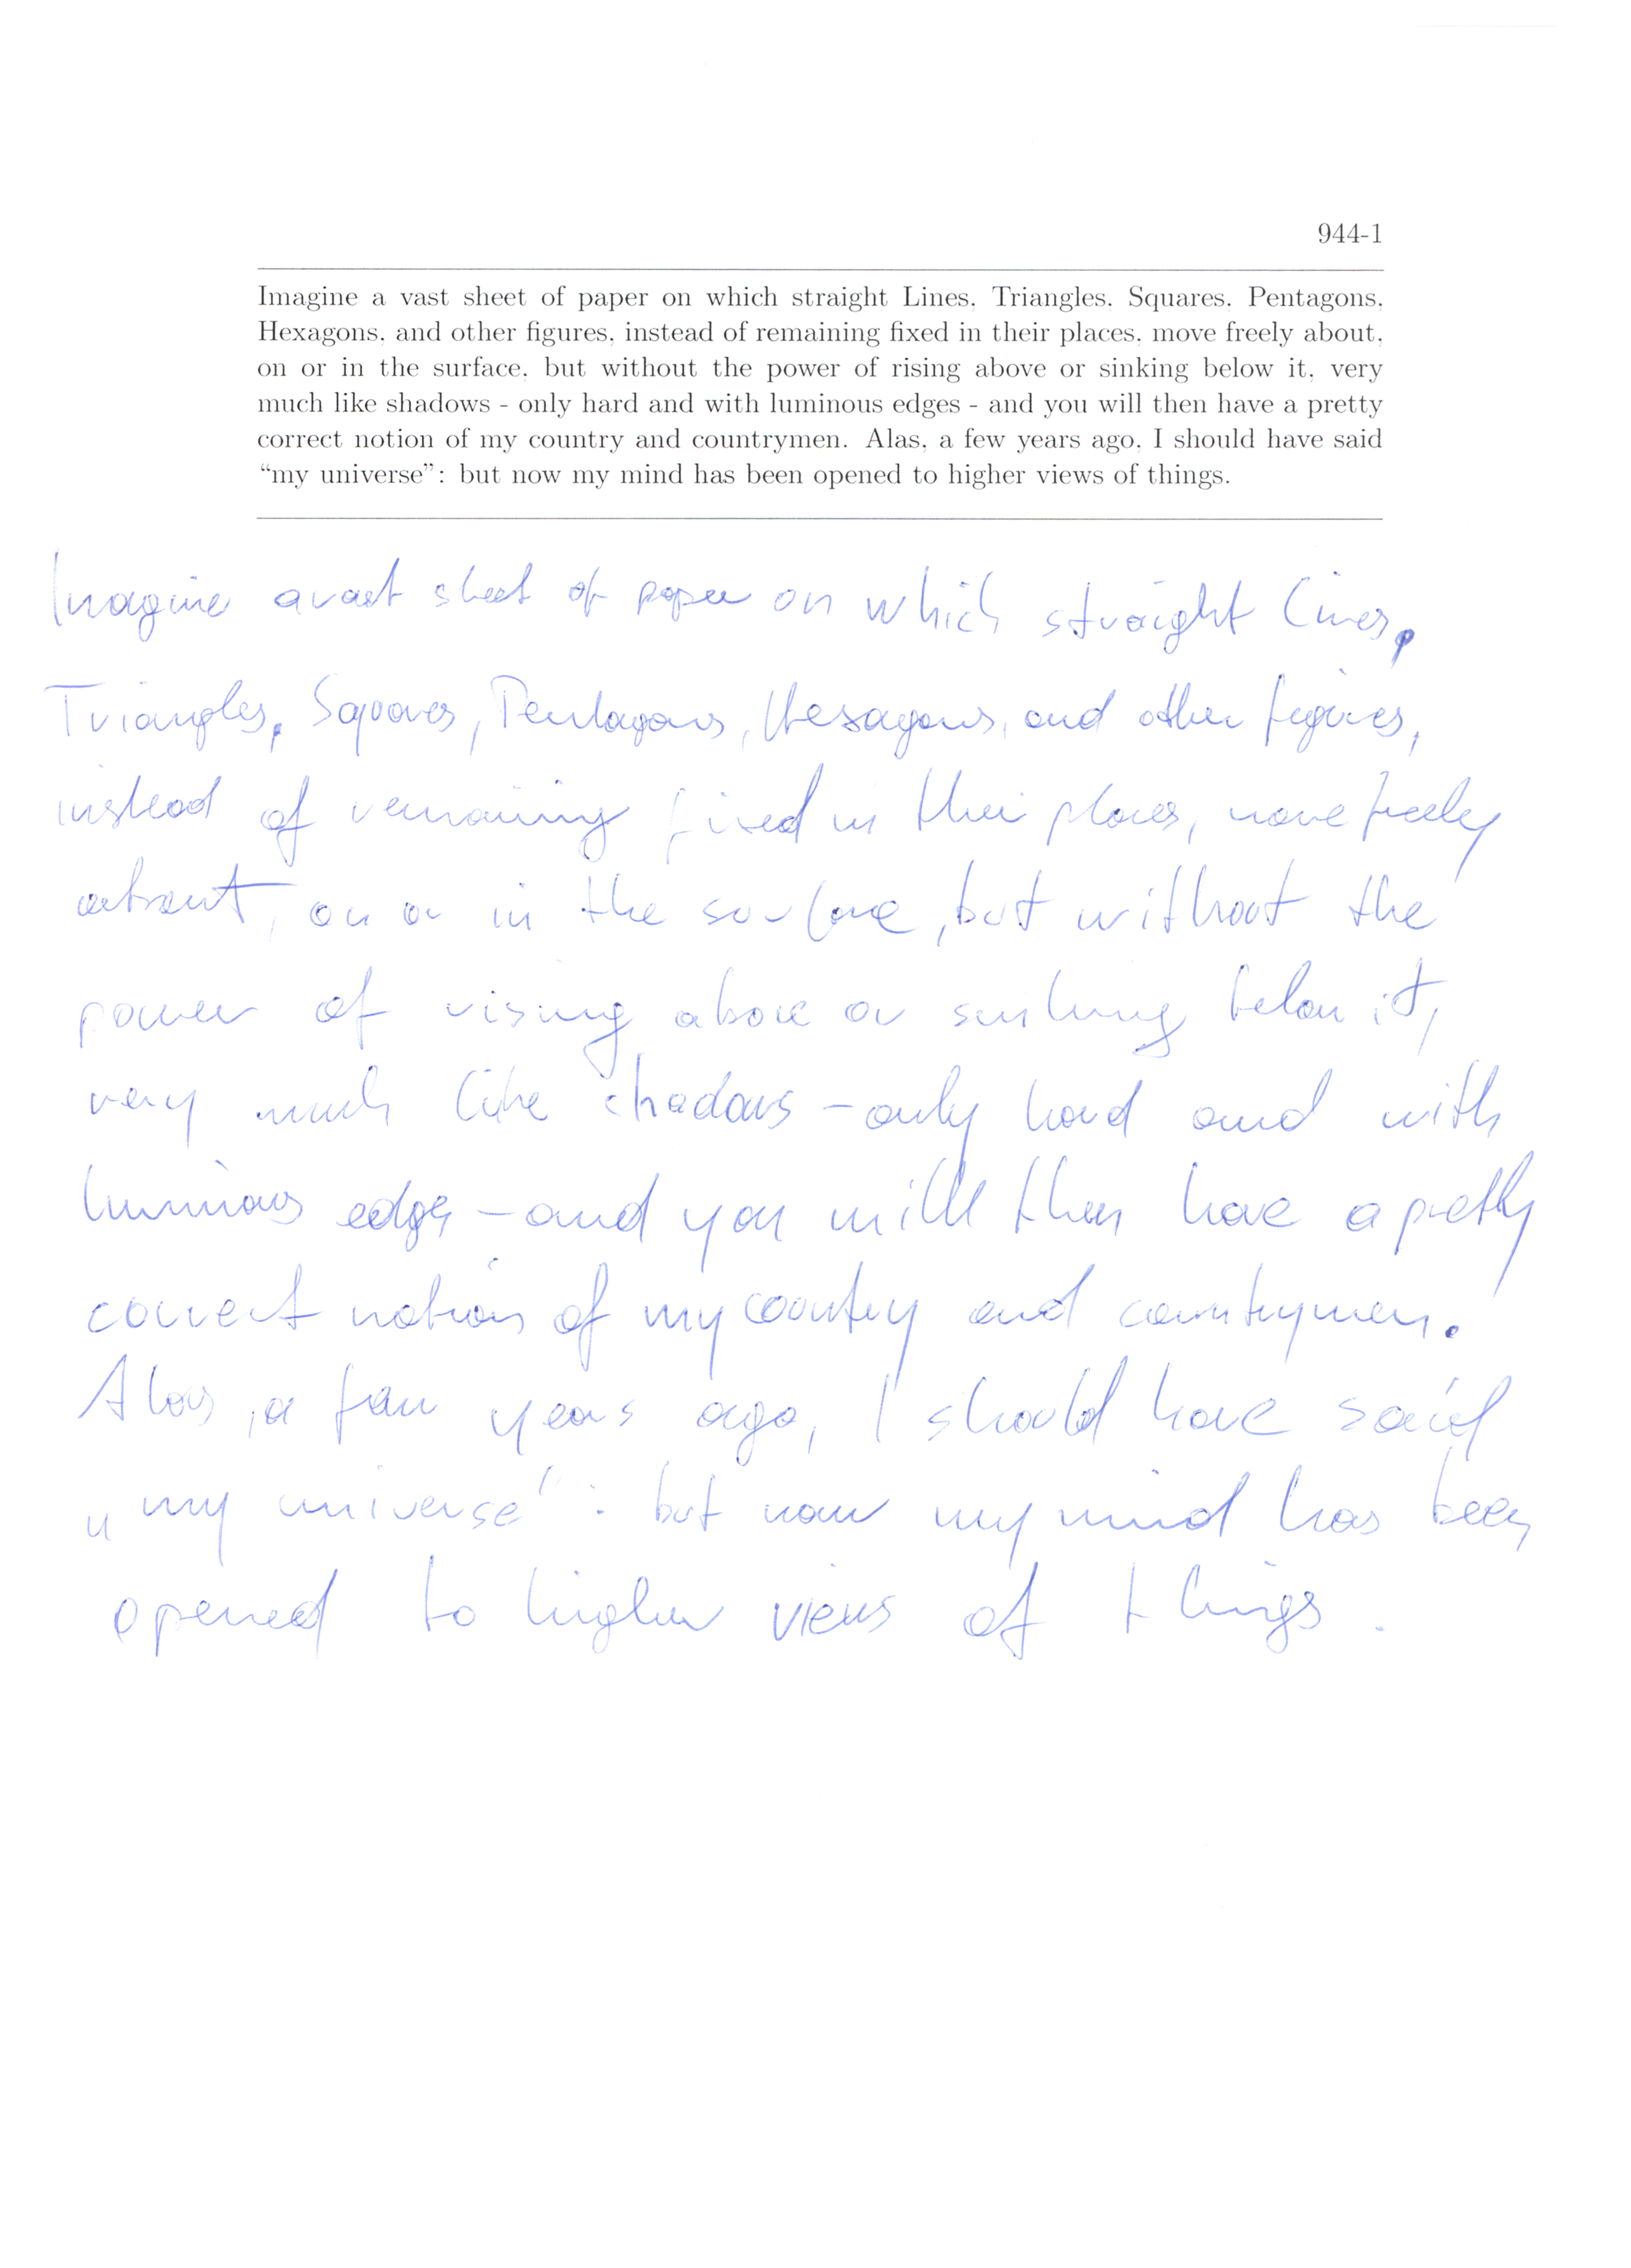 944-1
Imagine a vast sheet of paper on which straight Lines, Triangles, Squares, Pentagons,
Hexagons, and other figures, instead of remaining fixed in their places, move freely about,
on or in the surface, but without the power of rising above or sinking below it, very
much like shadows - only hard and with luminous edges - and you will then have a pretty
correct notion of my country and countrymen. Alas, a few years ago, I should have said
“my universe”: but now my mind has been opened to higher views of things.
Imagine a vast sheet of paper on which straight Lines,
Triangles, Squares, Pentagons, Hexagons, and other figures,
instead of remaining fixed in their places, move freely
about, on or in the surface, but without the
power of rising above or sinking below it,
very much like shadows - only hard and with
luminous edges - and you will then have a pretty
correct notion of my country and countrymen.
Alas, a few years ago, I should have said
„my universe": but now my mind has been
opened to higher views of things.